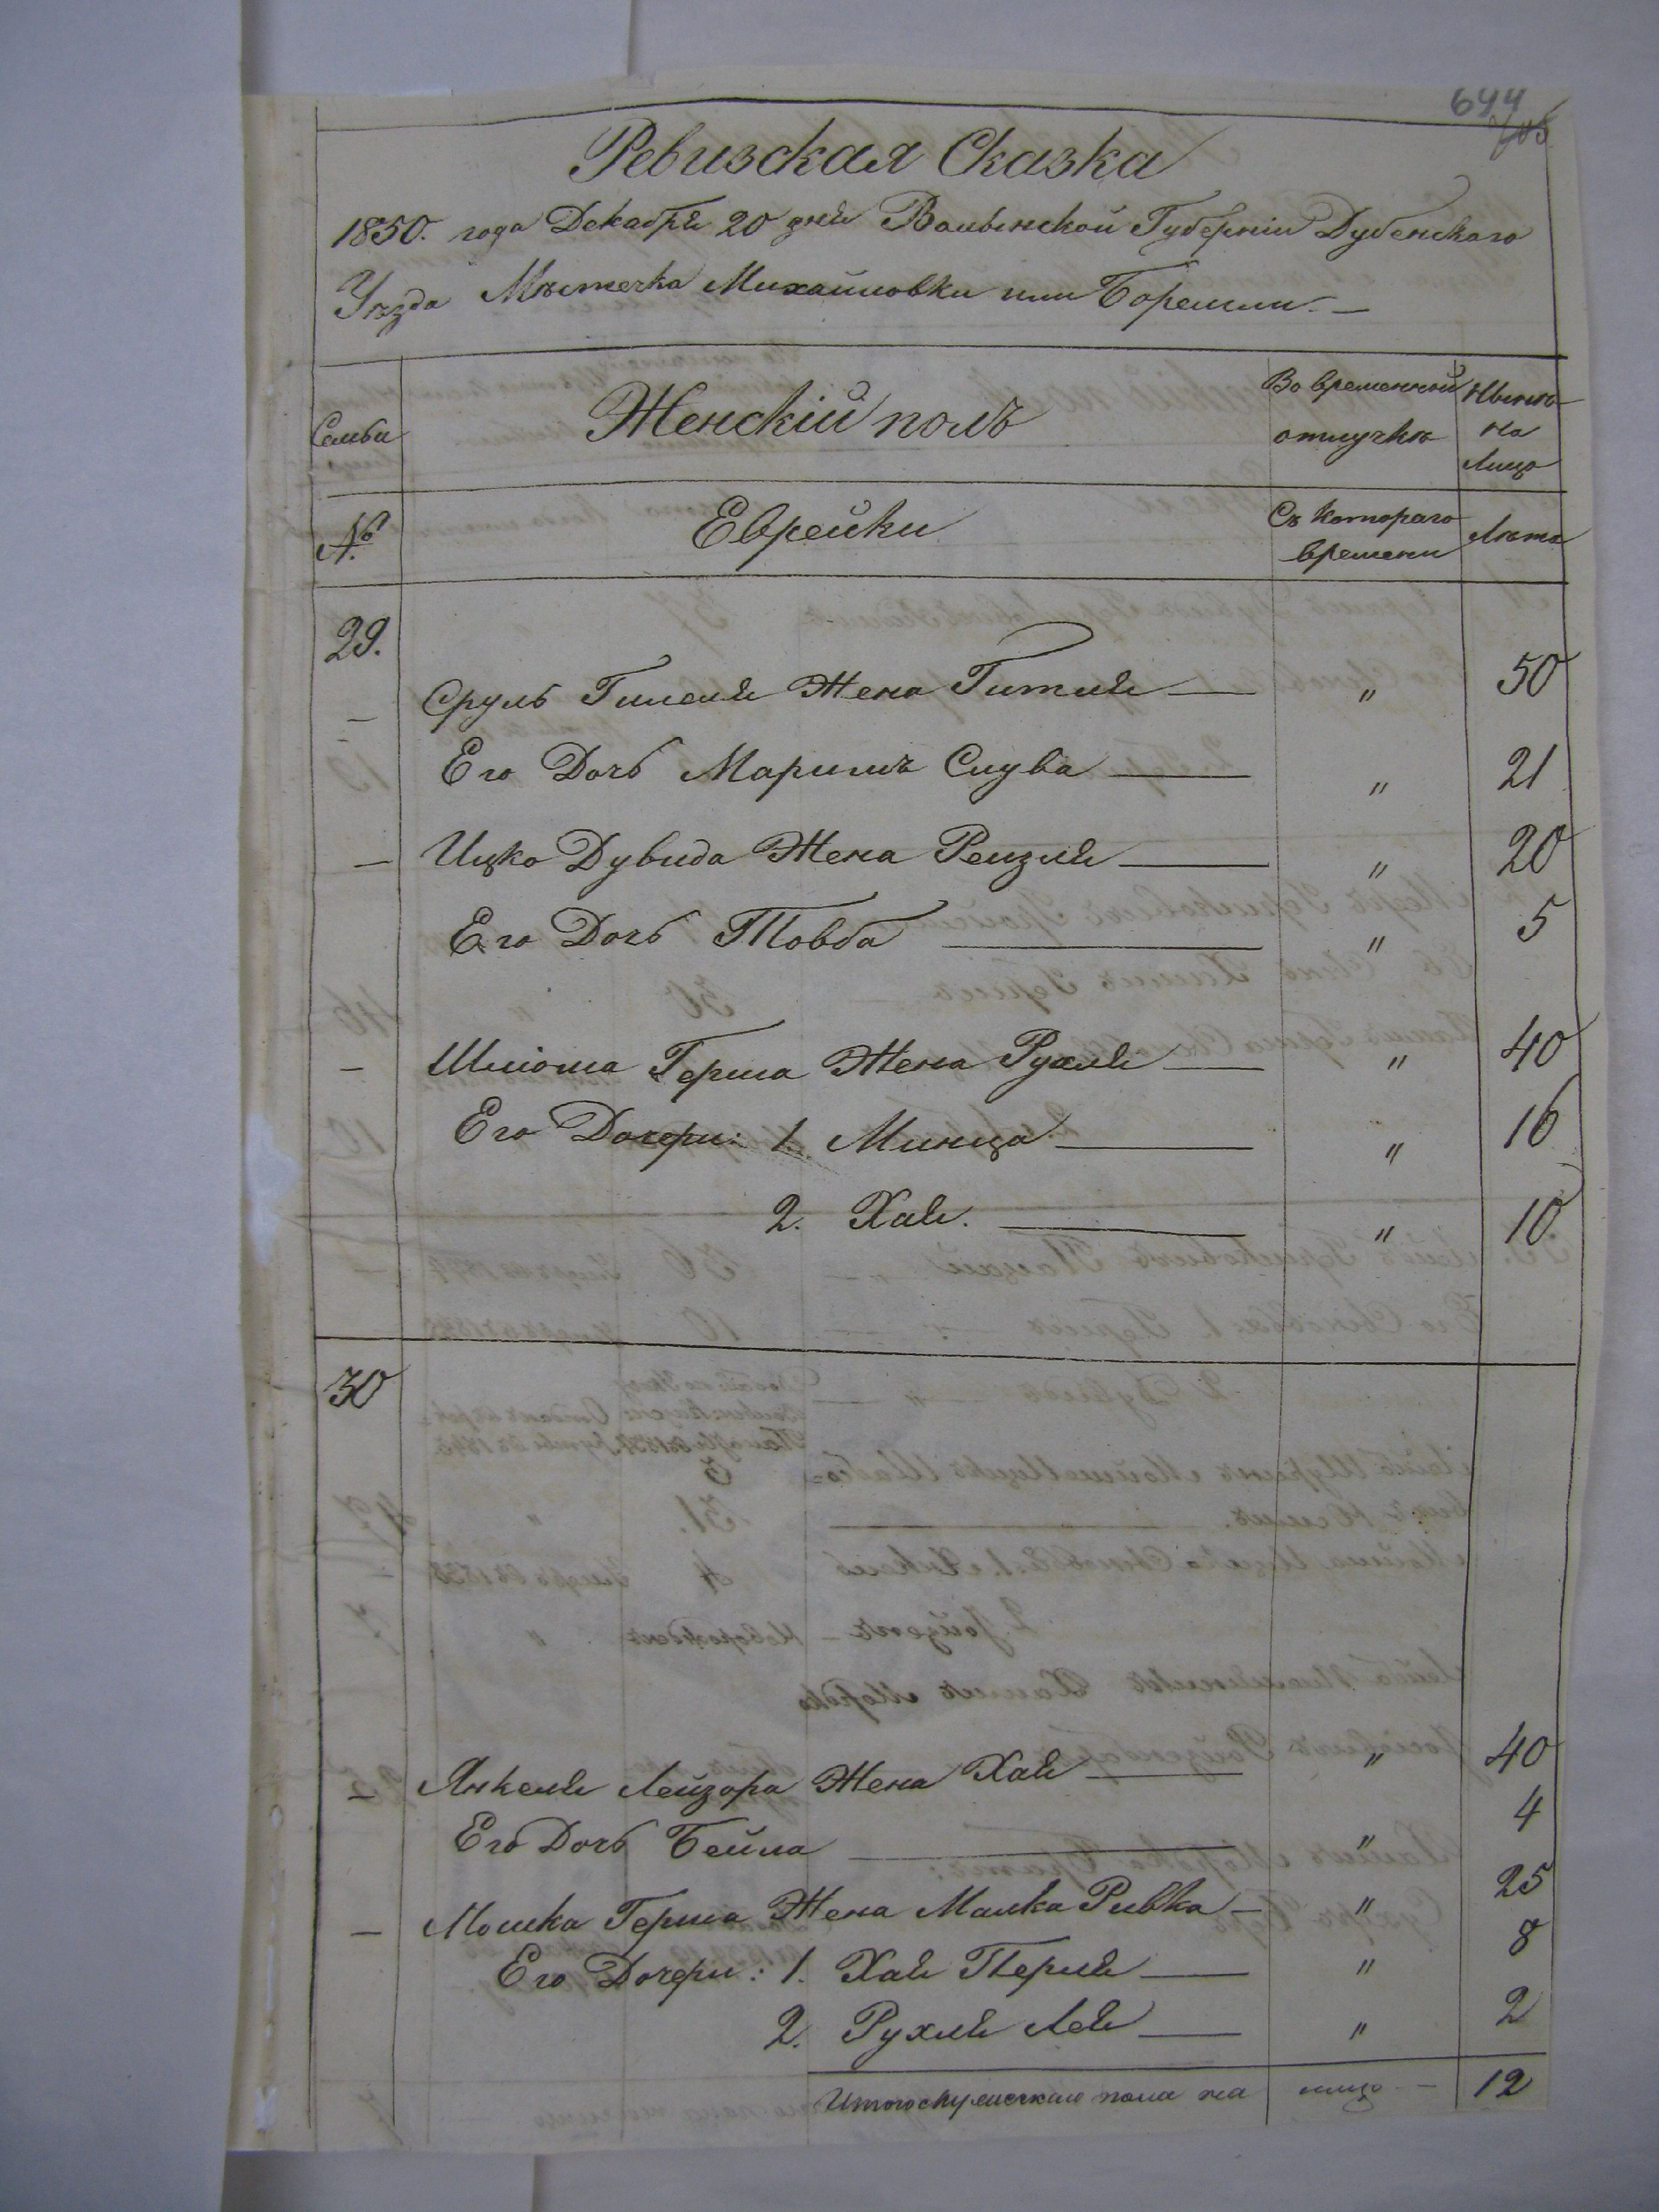 644
705
Ревизская Сказка
1850. года Декабря 20 дня Волынской Губерніи Дубенскаго
Уѣзда Мѣстечка Михайловки или Боремли. —
Семьи
Женскій полъ
Во временной отлучкѣ
Нынѣ на лицо
№
Еврейки
Съ котораго времени
Лѣта
29.
Сруль Гилеля Жена Гитля — " 50
Его Дочь Маримъ Слува — " 21
— Ицко Дувида Жена Рейзля — " 20
Его Дочь Товба — " 5
— Шліома Герша Жена Рухля — " 40
Его Дочери: 1. Минца — " 16
2. Хая. — " 10
30
— Янкеля Лейзора Жена Хая — " 40
Его Дочь Бейла — " 4
— Мошка Герша Жена Малка Ривка — " 25
Его Дочери: 1. Хая Перля — " 8
2. Рухля Лея — " 2
Итого женскаго пола на лицо — 12